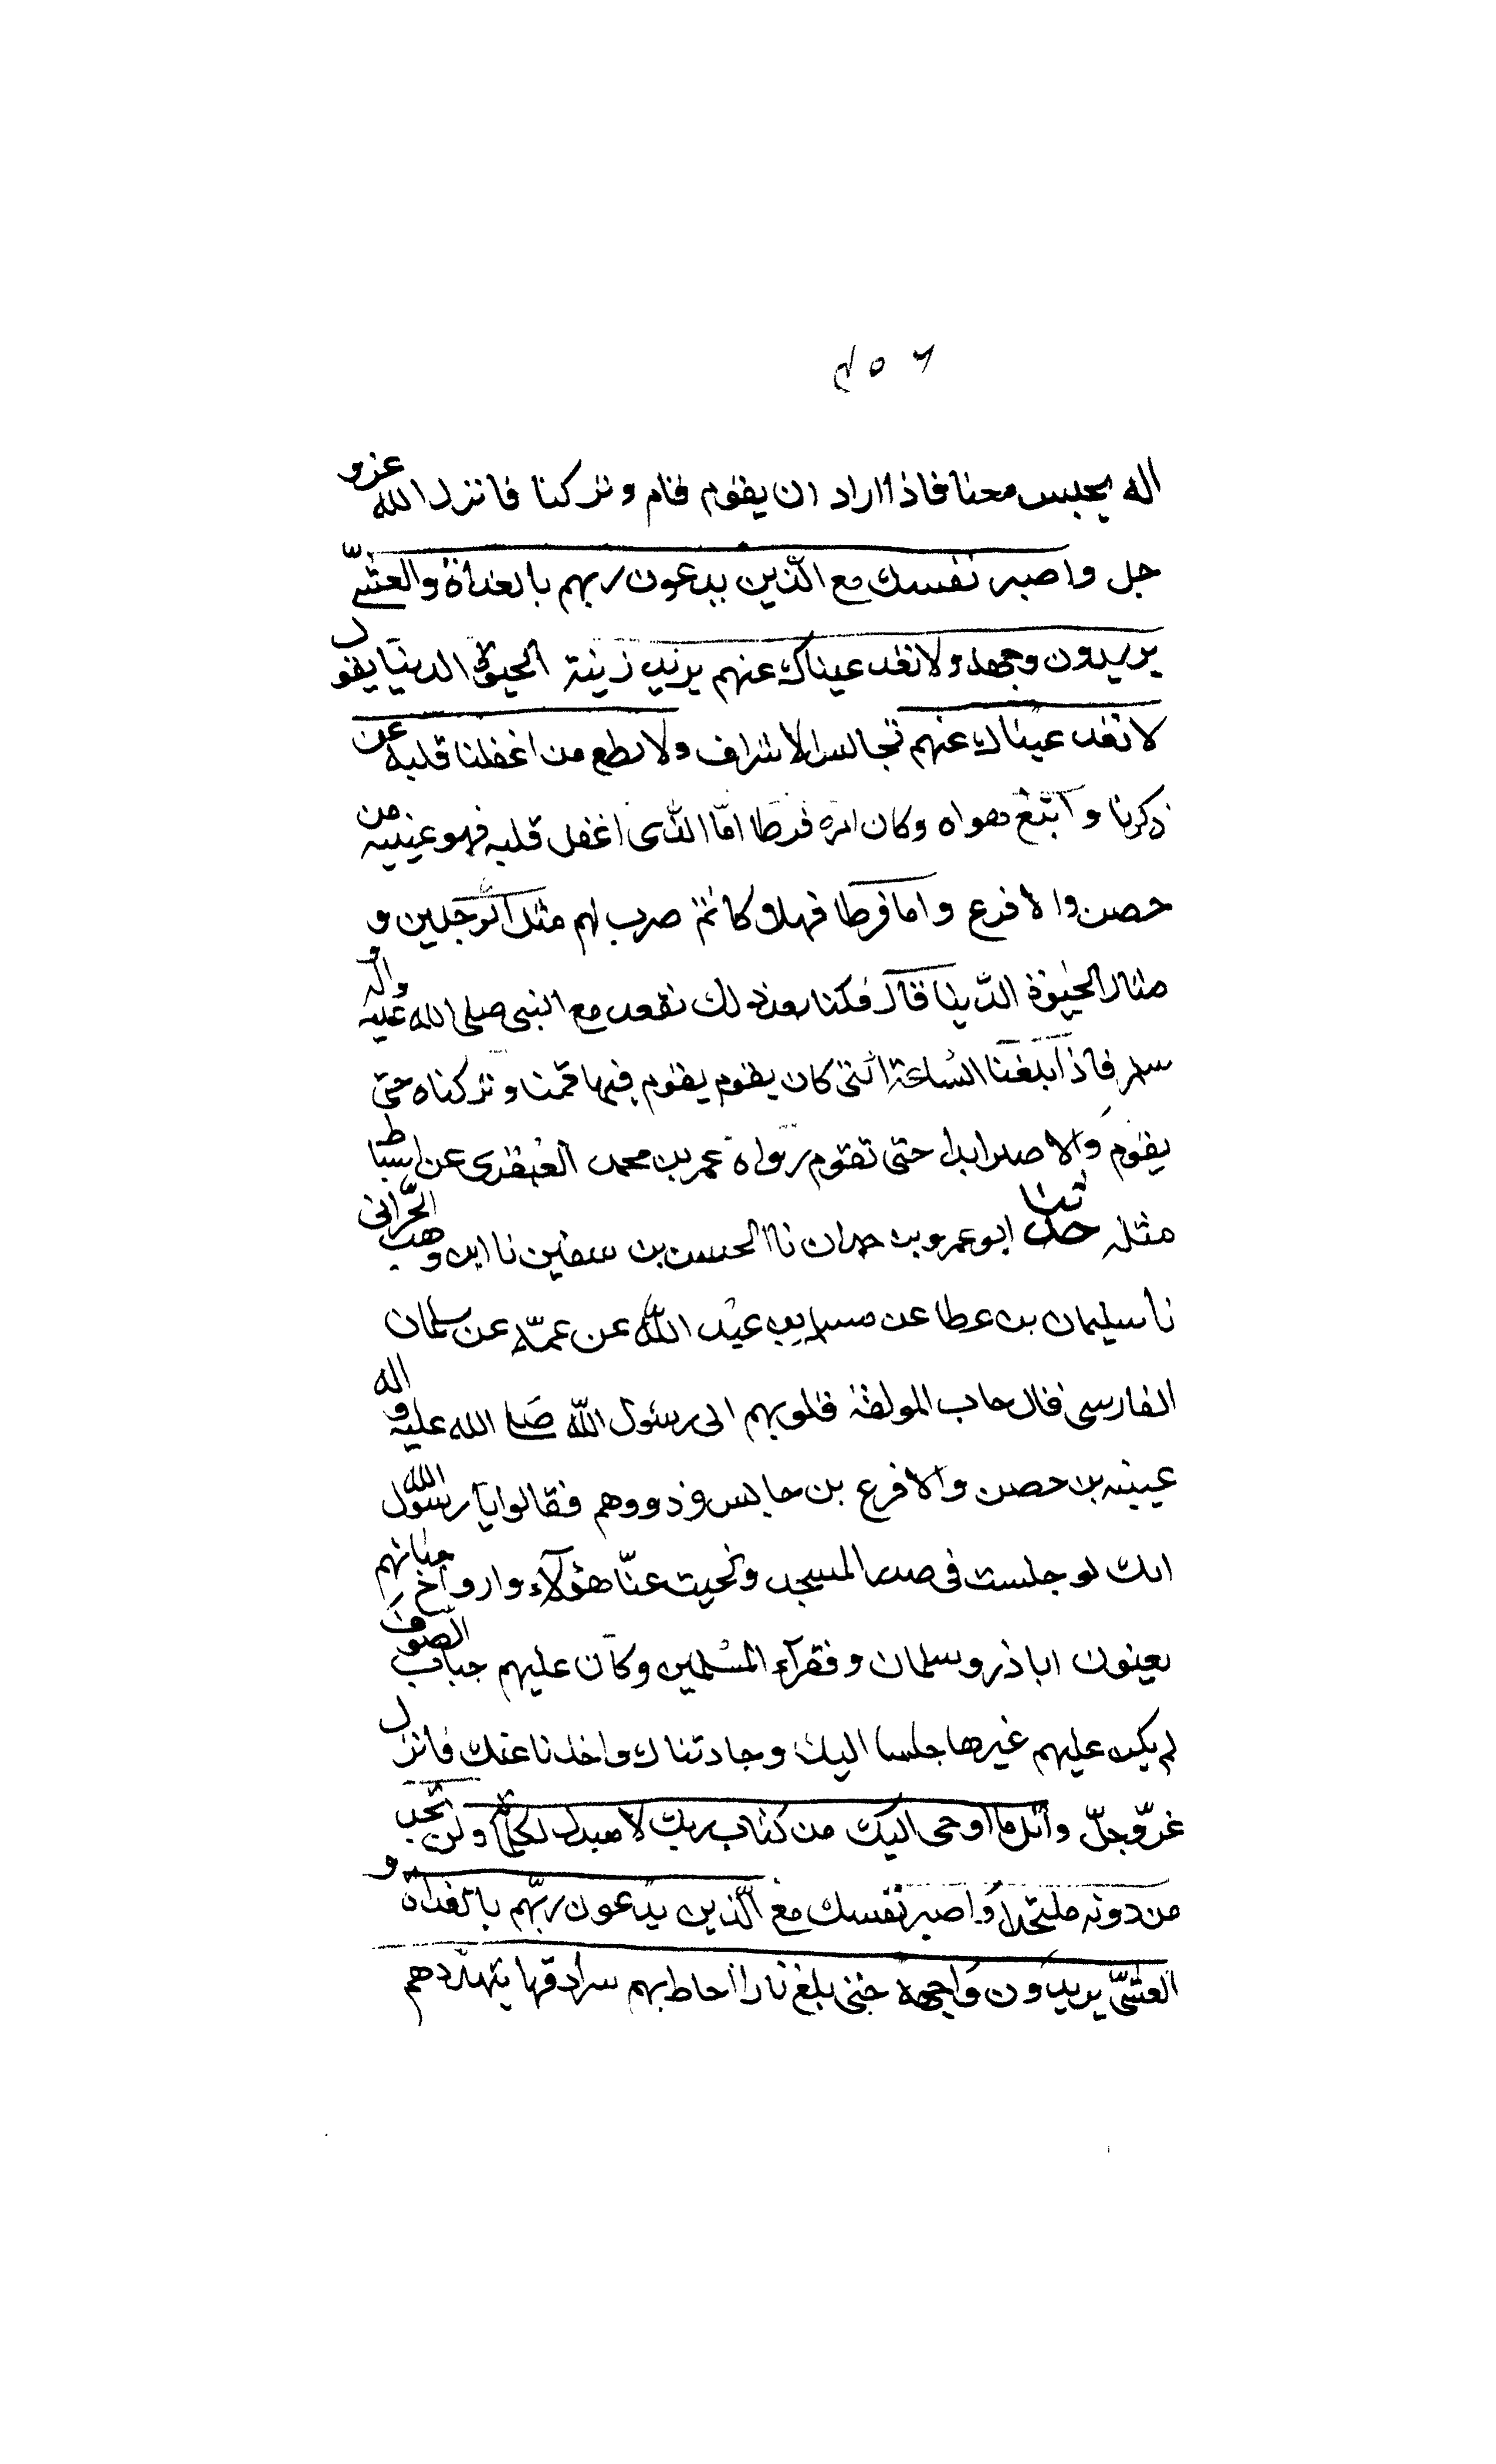 اله يجلس معنا فاذا اراد ان يقوم قام وتركنا فانزل الله عز و
جل واصبر نفسك مع الذين يدعون ربهم بالغداة والعشي
يريدون وجهه ولا تعد عيناك عنهم تريد زينة الحيوة الدنيا يقول
لا تعد عيناك عنهم تجالس الاشراف ولا تطع من اغفلنا قلبه عن
ذكرنا واتبع هواه وكان امره فرطا اما الذى اغفل قلبه فهو عيينه من
حصن والاقرع واما فرطا فهلاكا ثم ضرب لهم مثل الرجلين و
مثل الحيوة الدنيا قال فكنا بعد ذلك نقعد مع النبى صلى الله عليه واله و
سلم فاذا بلغنا الساعة التى كان يقوم يقوم فيها قمنا وتركناه حتى
يقوم والا صبر ابدا حتى تقوم رواه عمر بن محمد العنقزى عن اسباط
مثله حدثنا ابو عمرو بن حمدان نا الحسن بن سفين نا ابو وهب الحرانى
نا سليمان بن عطا عن مسلم بن عبد الله عن عمه عن سلمان
الفارسى قال جاب المولفة قلوبهم الى رسول الله صلى الله عليه واله
عيينه بن حصن والاقرع بن حابس وذووهم فقالوا يا رسول الله
انك لو جلست فى صدر المسجد ونحيت عنا هؤلاء وارواح جبابهم
يعنون اباذر وسلمان وفقرآء المسلمين وكان عليهم جباب الصوف
لم يكن عليهم غيرها جلسنا اليك وحادثناك واخذنا عنك فانزل
عز وجل واتل ما اوحى اليك من كتاب ربك لا مبدل لكلماته ولن تجد
من دونه ملتحدا واصبر نفسك مع الذين يدعون ربهم بالغداة و
العشى يريدون وجهه حتى بلغ نارا احاط بهم سرادقها يتهددهم